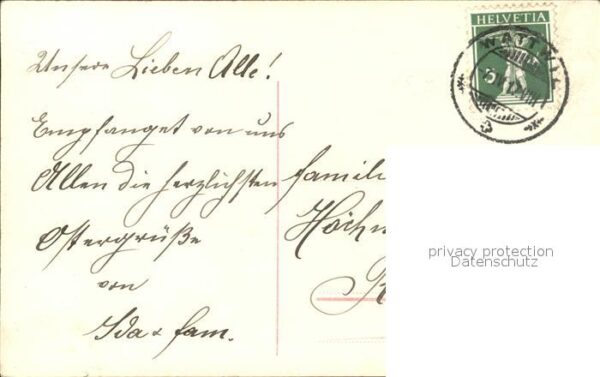 Unsere Lieben Alle!
Empfanget von uns
Allen die herzlichsten
Ostergrüße
von
Ida & fam.
famili
Höchn
HELVETIA
5
WATTWIL
privacy protection
Datenschutz